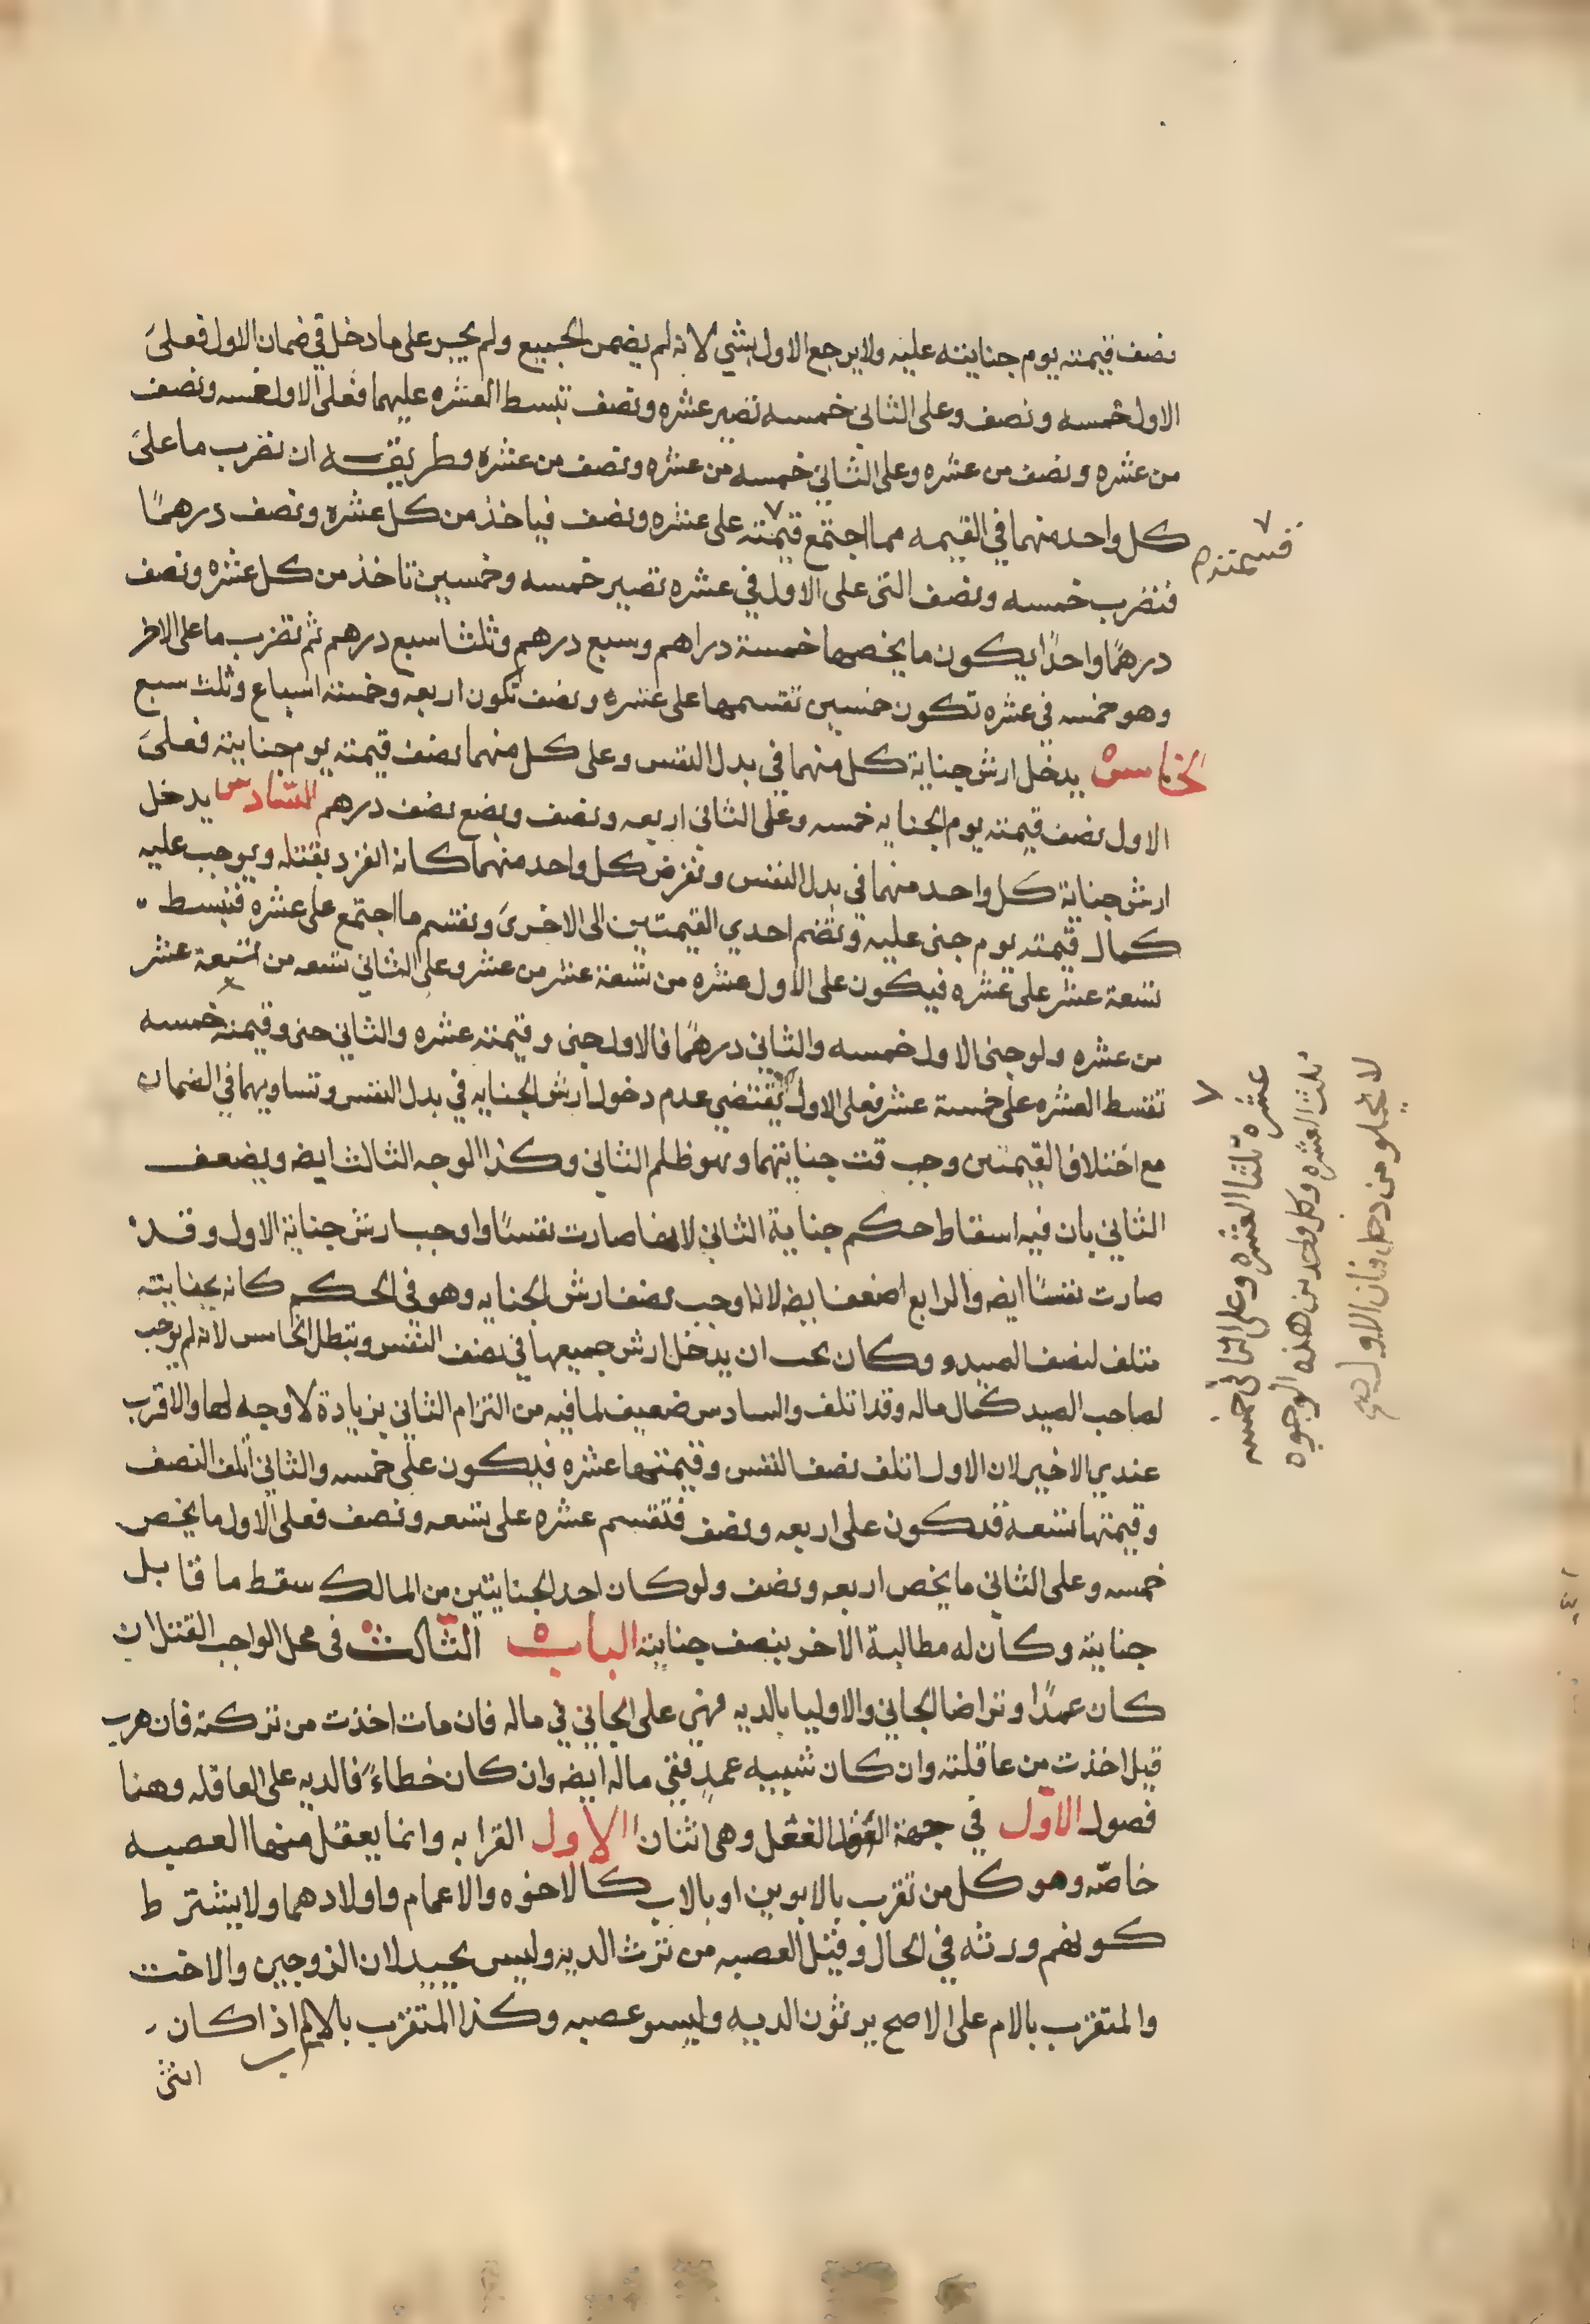 نصف قيمته يوم جنايته عليه ولا يرجع الاول بشي لانه لم يضمن الجميع ولم يجبر على ما دخل في ضمان الاول فعلى
الاول خمسه ونصف وعلى الثاني خمسه تصير عشره ونصف تبسط العشره عليهما فعلى الاول خمسه ونصف
من عشره ونصف من عشره وعلى الثاني خمسه من عشره ونصف من عشره وطريقه ان تضرب ما على
كل واحد منهما في القيمه مما اجتمع قيمته على عشره ونصف فياخذ من كل عشره ونصف درهمًا
قسمته م
فتضرب خمسه ونصف التى على الاول في عشره تصير خمسه وخمسين تاخذ من كل عشره ونصف
درهمًا واحدًا يكون ما يخصها خمسة دراهم وسبع درهم وثلثا سبع درهم ثم تضرب ما على الاخر
وهو خمسه في عشره تكون خمسين تقسمها على عشره ونصف تكون اربعه وخمسة اسباع وثلث سبع
الخامس يدخل ارش جناية كل منهما في بدل النفس وعلى كل منهما نصف قيمته يوم جنايته فعلى
الاول نصف قيمته يوم الجنايه خمسه وعلى الثاني اربعه ونصف ويضع نصف درهم السادس يدخل
ارش جناية كل واحد منهما في بدل النفس وتفرض كل واحد منهما كانه انفرد بقتله ويوجب عليه
كمال قيمته يوم جنى عليه وتضم احدي القيمتين الى الاخرى وتقسم ما اجتمع على عشره فتبسط
تسعة عشر على عشره فيكون على الاول عشره من تسعة عشر من عشر وعلى الثاني تسعه من تسعة عشر
من عشره ولو جنى الاول خمسه والثاني درهمًا فالاول جنى وقيمته عشره والثاني جنى وقيمته خمسه
تقسط العشره على خمسة عشر فعلى الاول يقتضي عدم دخول ارش الجنايه في بدل النفس وتساويهما في الضمان
عشره ثلثا العشره وعلى الثاني خمسه
ثلث العشره وكل واحد من هذه الوجوه
لا يخلو من دخل فان الاول صح
مع اختلاف القيمتين وجب قت جنايتهما وهو ظلم الثاني وكذا الوجه الثالث ايضه ويضعف
الثاني بان فيه اسقاط حكم جناية الثاني لانها صارت نفسًا واوجب ارش جناية الاول وقد
صارت نفسًا ايضه والرابع اضعف ايضه لانه اوجب نصف ارش الجنايه وهو في الحكم كانه بجنايته
متلف لنصف الصيد وكان يجب ان يدخل ارش جميعها في نصف النفس ويبطل الخامس لانه لم يوجب
لصاحب الصيد كمال ماله وقد اتلف والسادس ضعيف لما فيه من التزام الثاني بزيادة لا وجه لها والاقرب
عندي الاخير لان الاول اتلف نصف النفس وقيمتها عشره فيكون على خمسه والثاني اتلف النصف
وقيمتها تسعة فيكون على اربعه ونصف فتقسم عشره على تسعه ونصف فعلى الاول ما يخص
خمسه وعلى الثاني ما يخص اربعه ونصف ولو كان احد الجنايتين من المالك سقط ما قابل
جنايته وكان له مطالبة الاخر بنصف جنايته الباب الثالث في محل الواجب القتل ان
كان عمدًا وتراضا الجاني والاوليا بالديه فهي على الجاني في ماله فان مات اخذت من تركته فان هرب
قيل اخذت من عاقلته وان كان شبيه عمدٍ ففي ماله ايضه وان كان خطاءً فالديه على العاقله وهنا
فصول الاوّل في جهة العقل وهى اثنان الاول القرابه وانما يعقل منها العصبه
خاصّه وهو كل من تقرب بالابوين او بالاب كالاخوه والاعمام واولادهما ولا يشترط
كونهم ورثه في الحال وقيل العصبه من ترث الديه وليس بجيد لان الزوجين والاخت
والمتقرب بالام على الاصح يرثون الديه وليسو عصبه وكذا المتقرب بالاب اذا كان
انثى